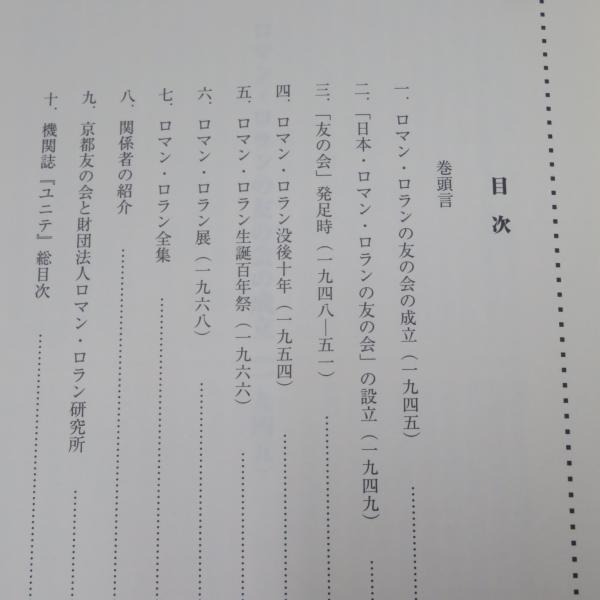 目次
巻頭言
一．ロマン・ロランの友の会の成立（一九四五）
二．「日本・ロマン・ロランの友の会」の設立（一九四九）
三．「友の会」発足時（一九四八―五一）
四．ロマン・ロラン没後十年（一九五四）
五．ロマン・ロラン生誕百年祭（一九六六）
六．ロマン・ロラン展（一九六八）
七．ロマン・ロラン全集
八．関係者の紹介
九．京都友の会と財団法人ロマン・ロラン研究所
十．機関誌『ユニテ』総目次